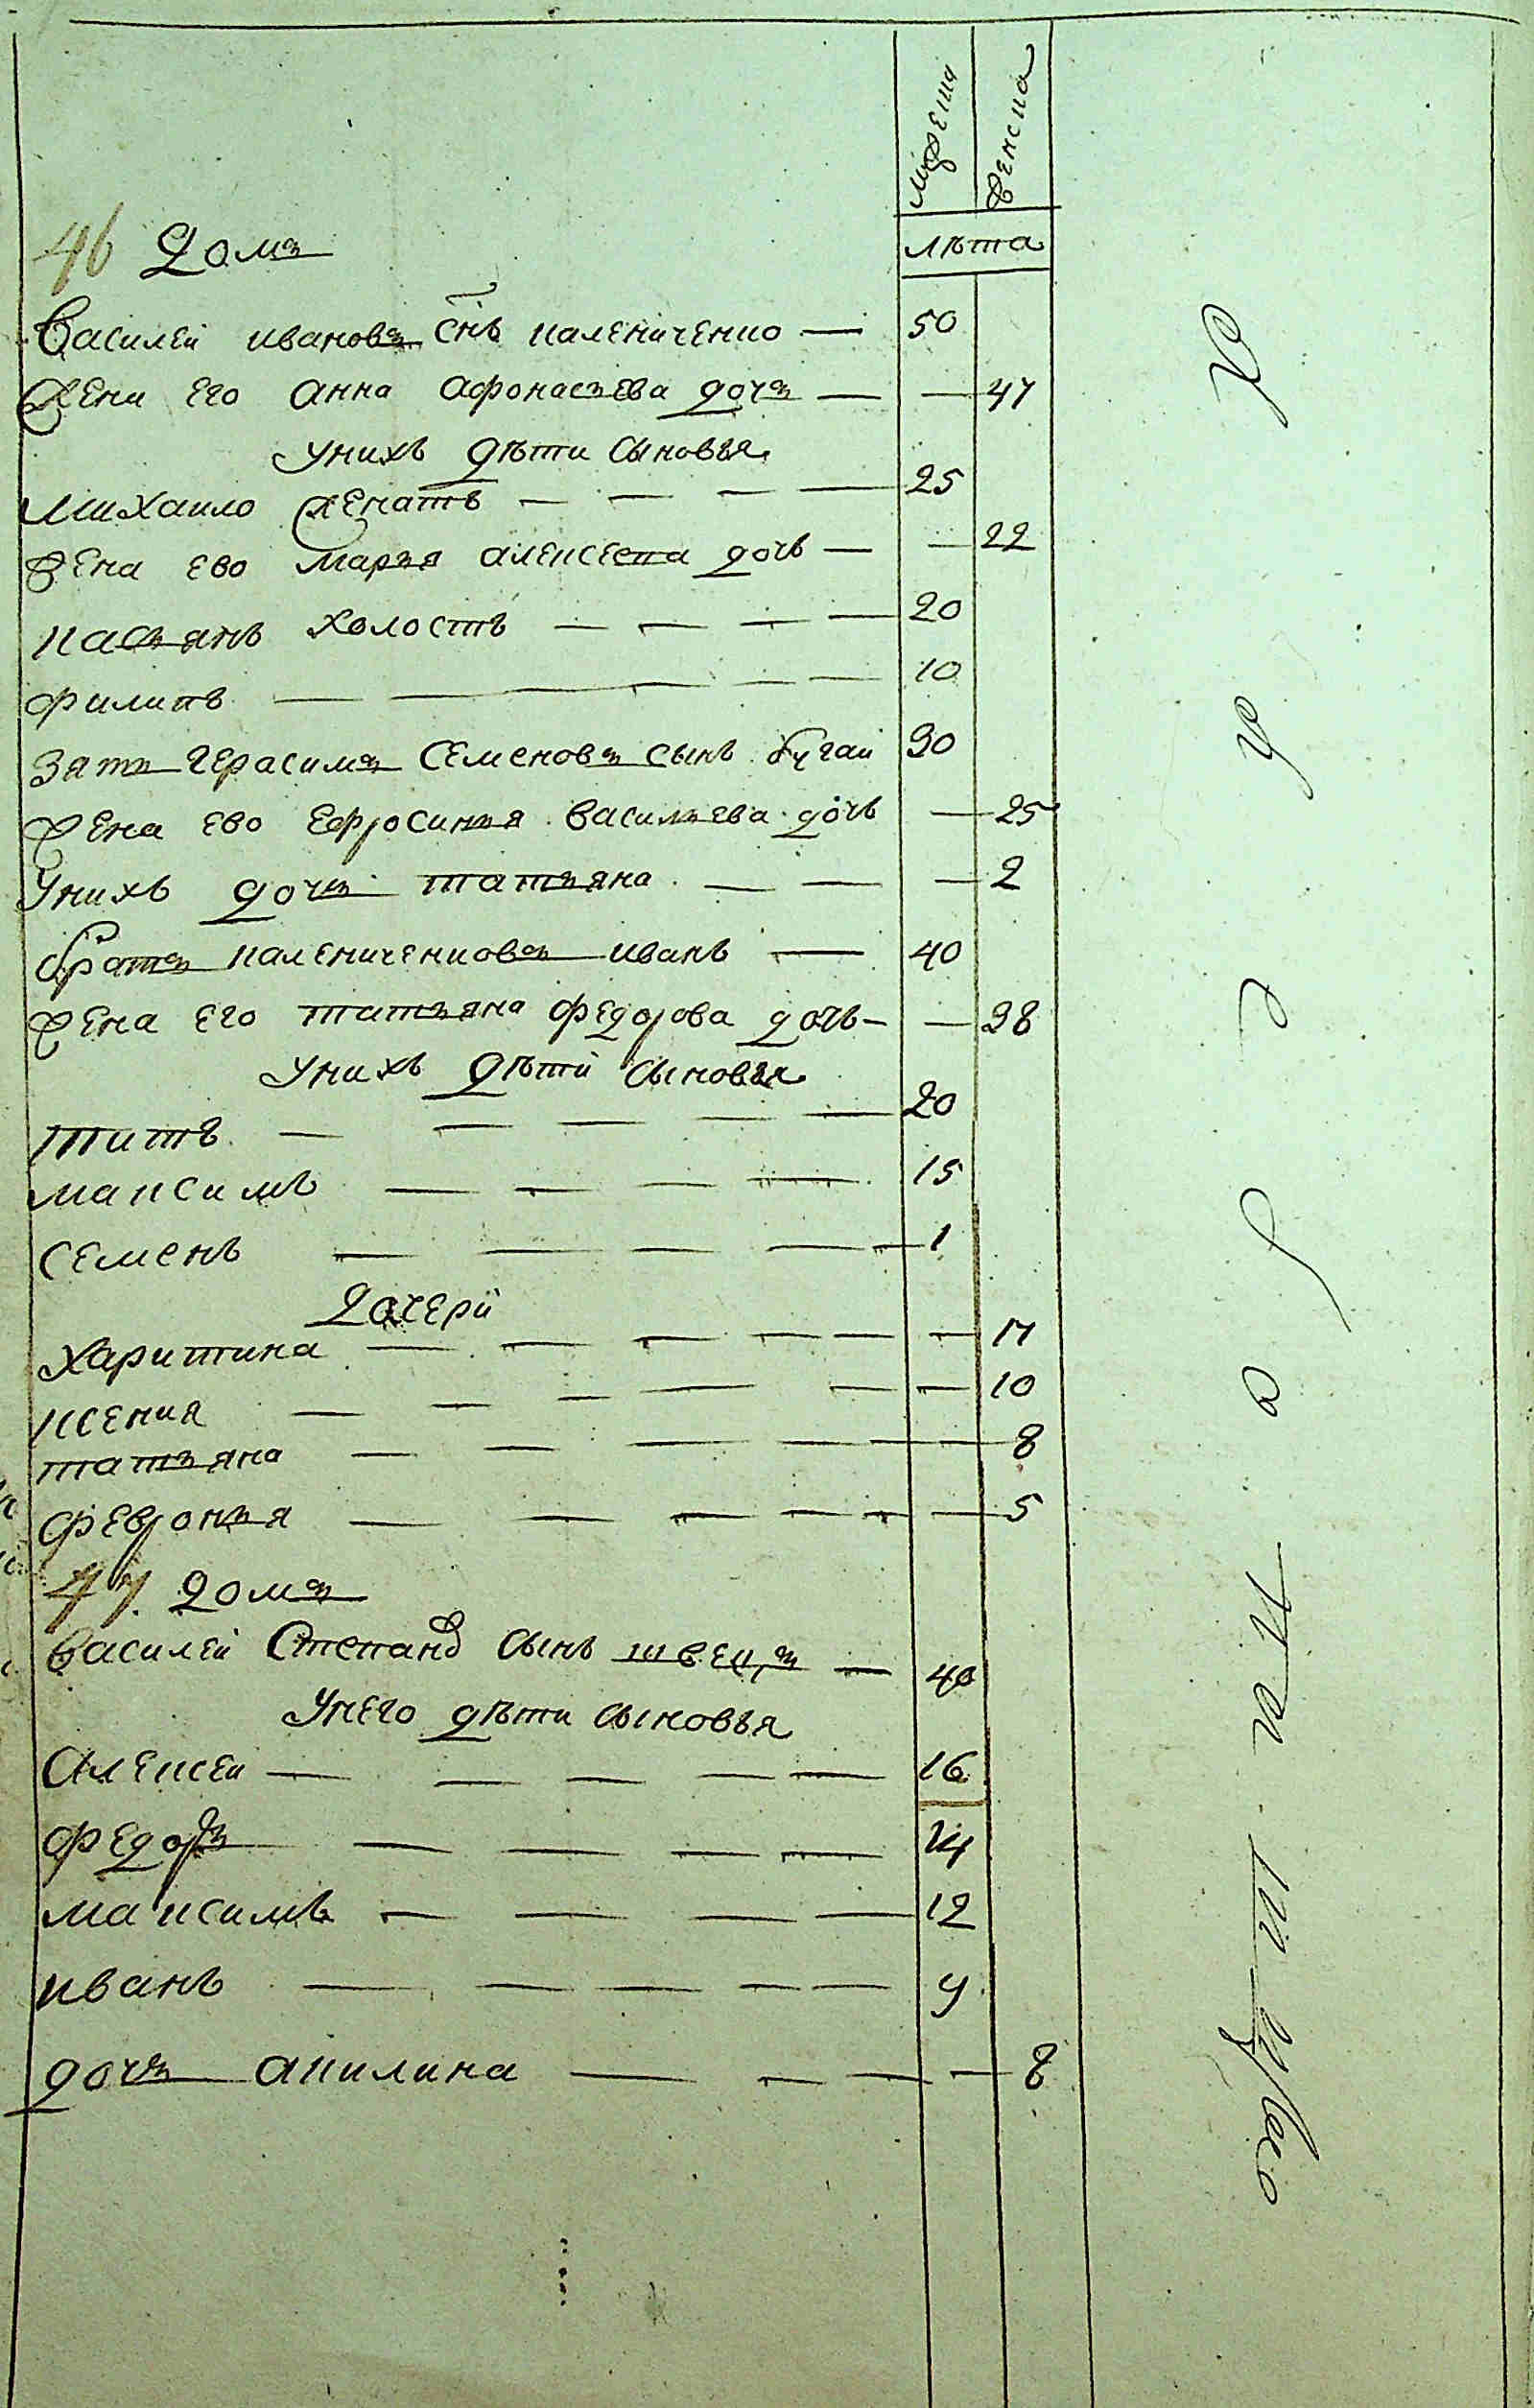 мужеска
женска
лѣта
46 домъ
Василеи ивановъ снъ паленичеико — 50
Жена его анна афонасьева дочь — — 47
Унихъ дѣти сыновья
михаило женатъ — — — — 25
Жена ево марья алексеева дочь — — 22
касьянъ холостъ — — — — 20
филипъ — — — — — 10
зять герасимъ семеновъ сынъ бугаи 30
жена ево ефросинья васильева дочь — 25
унихъ дочь татьяна — — — 2
братъ паленичеиковъ иванъ — 40
жена его татьяна федорова дочь — — 38
Унихъ дѣти сыновья
титъ — — — — — 20
максимъ — — — — 15
семенъ — — — — — 1
Дочери
харитина — — — — — — 17
ксения — — — — — — 10
татьяна — — — — — — 8
февронья — — — — — — 5
47. домъ
василеи Степанов сынъ швецъ — 40
Унего дѣти сыновья
Алексеи — — — — — 16
федоръ — — — — 14
максимъ — — — — 12
иванъ — — — — — 9
дочь акилина — — — — 8